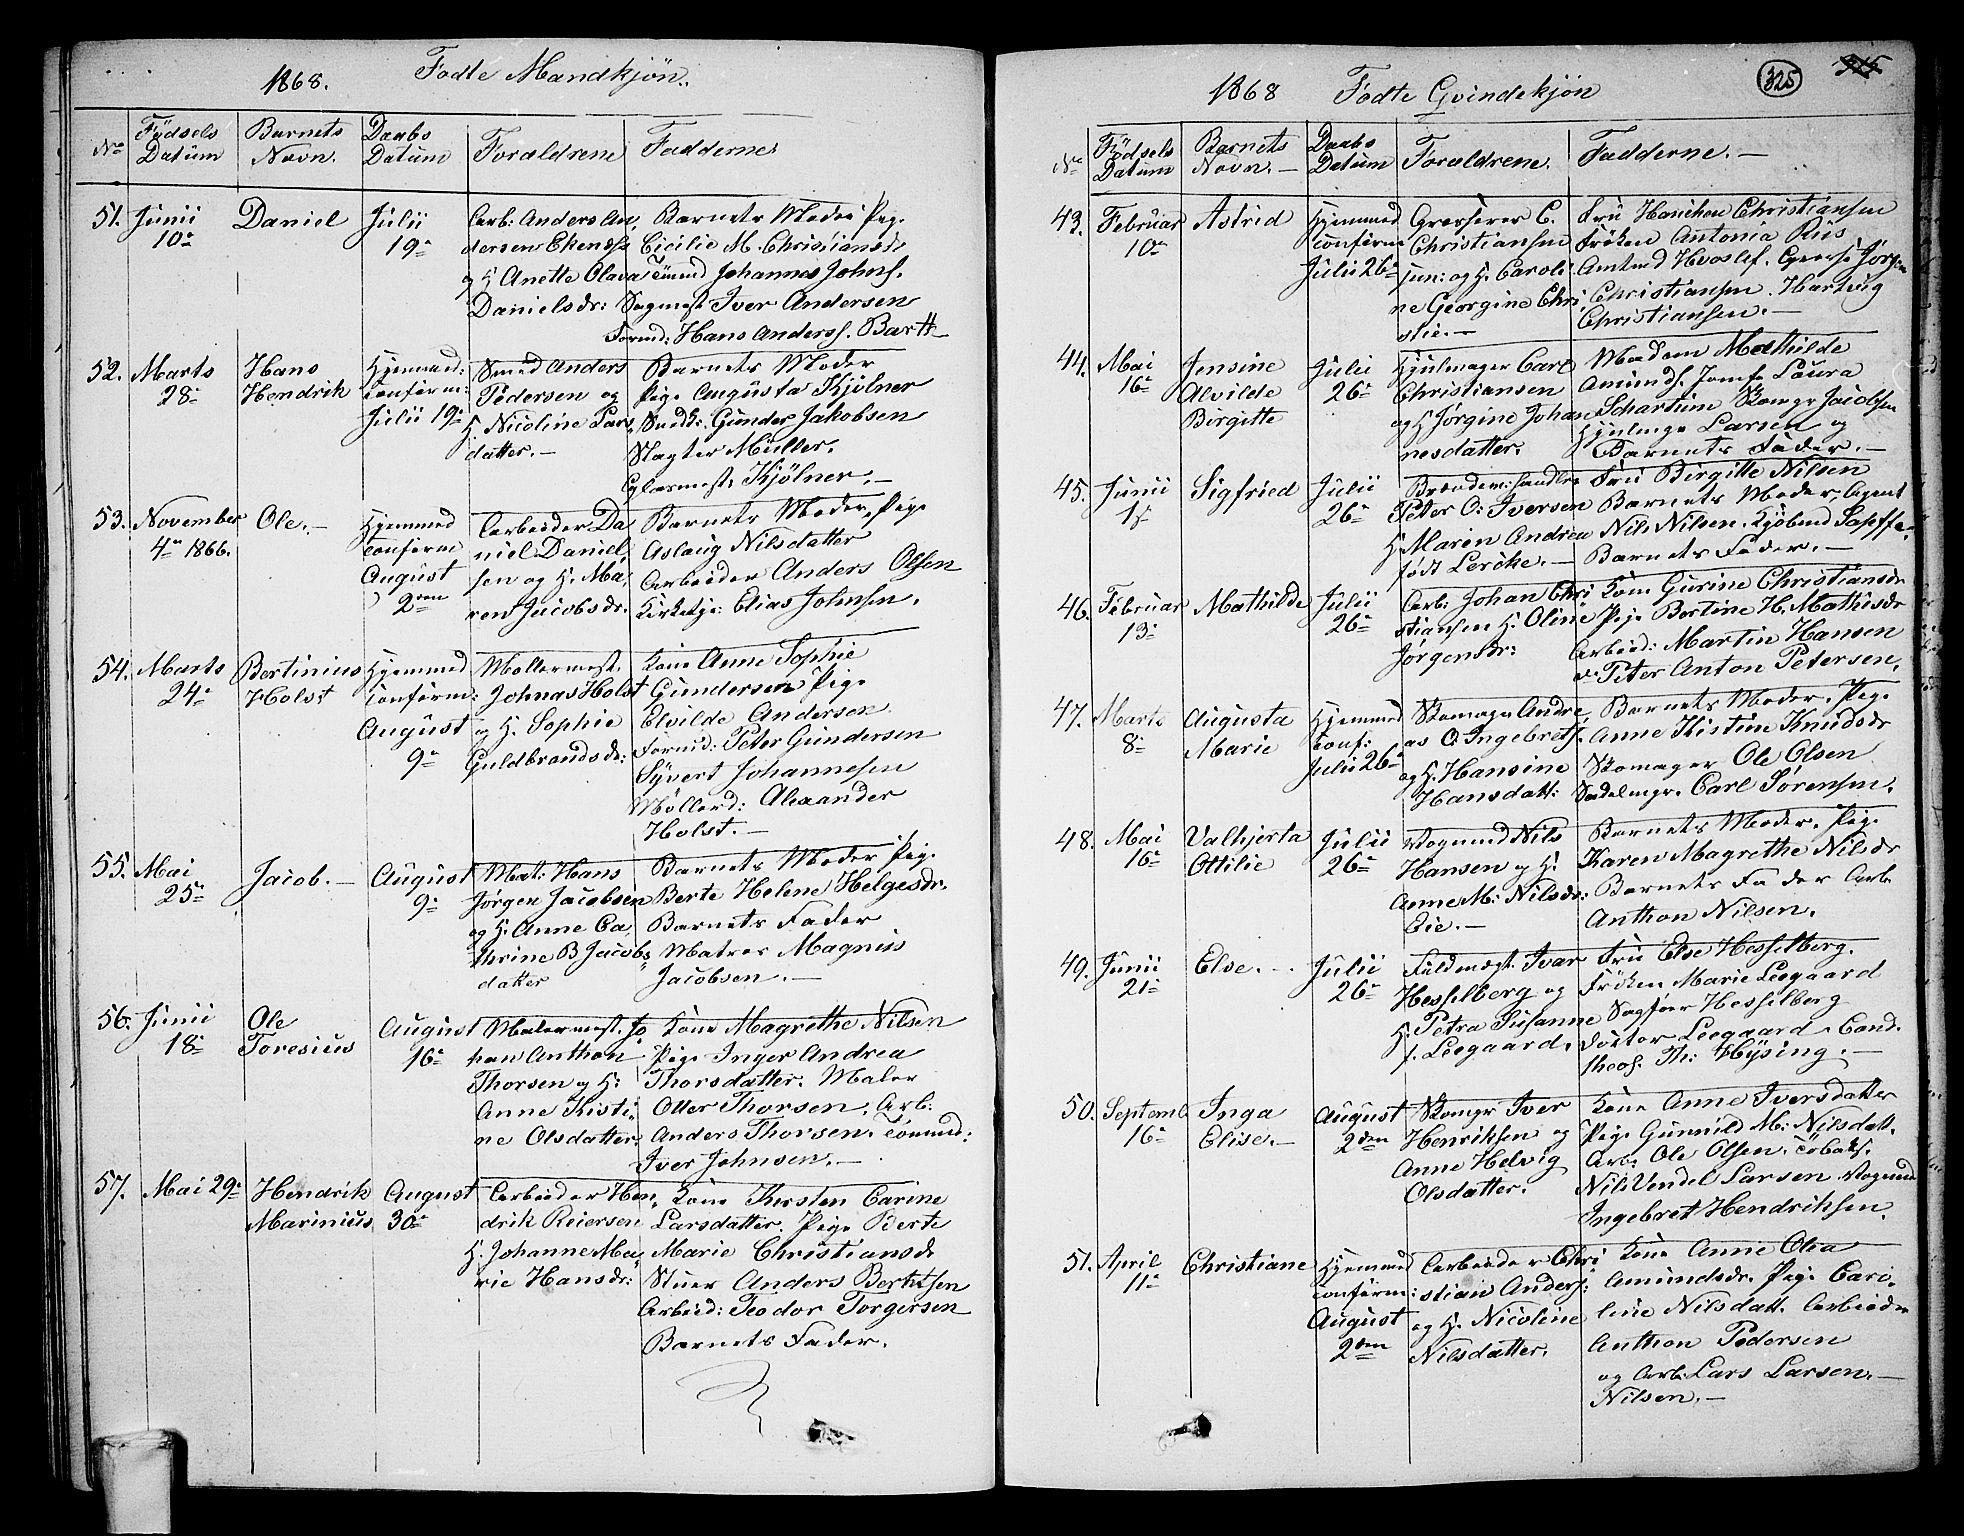 1868. Födte Mandkjøn.
No Födsels Datum Barnets Navn. Daabs Datum Forældrene Fadderne
51. Junii 10de Daniel Julii 19de
Arb: Anders An,
dersen Ekenæss
og H Anette Olava
Danielsdr:
Barnets Moder Pige
Cicilie M. Christiansdr
Tömmd Johannes Johns.
Sagmest Iver Andersen
Formd: Hans Anderss. Barth
52. Marts 28de Hans Hendrik Hjemmed: Conferm: Julii 19de
Smed Anders
Pedersen og
H Nicoline Lars,
datter.
Barnets Moder
Pige Augusta Kjølner
Smedd: Gunder Jakobsen
Slagter Müller.
Glasmest. Kjölner.
53. November 4de 1866. Ole. Hjemmed Conferm August 2den
Arbeider Da
niel Daniel,
sen og H. Ma,
ren Jacobsdr.
Barnets Moder, Pige
Aslaug Nilsdatter
Arbeider Anders Olsen
Kirketje: Elias Johnsen.
54. Marts 24de Bertinius Holst Hjemmed Conferm: August 9de
Møllermest.
Johnas Holst
og H. Sophie
Guldbrandsdr:
Kone Anne Sophie
Gundersen Pige
Elvilde Andersen
Formd: Peter Gundersen
Syvert Johannesen
Möllerd: Alexander
Holst.
55. Mai 25de Jacob. August 9de
Mat: Hans
Jørgen Jacobsen
og H. Anne Ca,
thrine B Jacobs
datter
Barnets Moder Pige
Berte Helene Helgesdr.
Barnets Fader
Matros Magnus
Jacobsen.
56. Junii 18de Ole Toresius August 16de
Malermest. Jo
han Anthon
Thorsen og H:
Anne Kisti
ne Olsdatter:
Kone Magrethe Nilsen
Pige Inger Andrea
Thorsdatter. Maler
Otter Thorsen, Arb:
Anders Thorsen. Tömmd:
Iver Johnsen.
57. Mai 29de Hendrik Marinius August 30de
Arbeider Hen,
drik Reiersen
H. Johanne Ma,
rie Hansdr:
Kone Kirsten Carine
Larsdatter. Pige Berte
Marie Christiansdr
Stuer Anders Berntsen
Arbeid: Teodor Torgersen
Barnets Fader.
1868 Födte Qvindekjøn 325 315
No Födsels Datum Barnets Navn. Daabs Datum Forældrene. Fadderne.
43. Februar 10de Astrid Hjemmed Conferm Julii 26de
Grosserer C.
Christiansen
jun: og H. Caroli,
ne Georgine Chri,
stie.
Fru Hanchen Christiansen
Fröken Antonia Riis
Amtmd Hvoslef. Gross Jörgen
Christiansen. Hartvig
Christiansen.
44. Mai 16de Jensine Alvilde Birgitte Julii 26de
Hjulmager Carl
Christiansen
og H Jørgine Johan
nesdatter.
Madam Mathilde
Amunds. Jomf. Laura
Schartum Skomgr Jacobsen
Hjulmgr Larsen og
Barnets Fader.
45. Junii 1ste Sigfried Julii 26de
Brændev: handler
Peter O: Iversen
H Maren Andrea
født Lerche.
Fru Birgitte Nilsen
Barnets Moder. Agent
Nils Nilsen. Kjöbmd
Barnets Fader.
46. Februar 13de Mathilde Julii 26de
Arb: Johan Chri
stiansen H. Oline
Jørgensdr:
Kone Gurine Christiansdr
Pige Bertine H. Mathisdr
Arbeid: Martin Hansen
Peter Anton Petersen.
47. Marts 8de Augusta Marie Hjemmed Conf: Julii 26de
Skomager Andre,
as O: Ingebrets.
og H. Hansine
Hansdatt:
Barnets Moder. Pige
Anne Kistine Knudsdr
Skomager Ole Olsen
Sadelmgr. Carl Sørensen.
48. Mai 16de Valhjerta Ottilie Julii 26de
Vognmd Nils
Hansen og H.
Anne M: Nilsdr:
Eie.
Barnets Moder. Pige
Karen Magrethe Nilsdr
Barnets Fader Arb.
Anthon Nilsen.
49. Junii 21de Else. Julii 26de
Fuldmægt. Ivar
Hesselberg og
H. Petra Susanne
f. Leegaard.
Fru Else Hesselberg.
Fröken Marie Leegaard
Sagförer Hesselberg
Doctor Leegaard. Cand.
theol. Th: Hysing.
50. Septemb 16de Inga Elise. August 2den
Skomgr Iver
Henriksen og
Anne Helvig
Olsdatter.
Kone Anne Iversdatter
Pige Gunnild M: Nilsdatt.
Arb: Ole Olsen. Tobaks.
Nils Vendel Larsen Vognmd
Ingebret Hendriksen.
51. April 11de Christiane Hjemmed Conferm: August 2den
Arbeider Chri
stian Anders:
og H. Nicoline
Nilsdatter.
Kone Anne Olea
Amundsdr. Pige Caro,
line Nilsdatt. Arbeider
Anthon Pedersen
og Arb: Lars Larsen.
Nilsen.